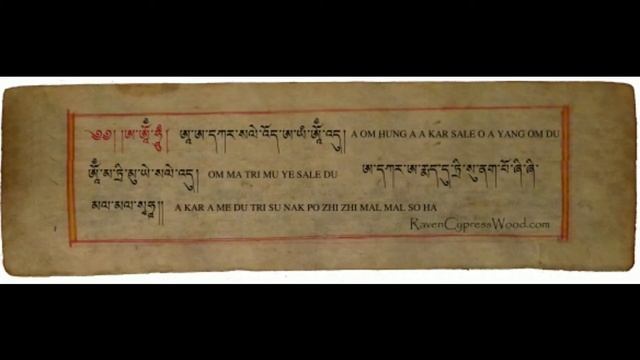 ༄༅། །ཨ་ཨོཾ་ཧཱུྃ། ཨཱ་ཨ་དཀར་སལེ་འོད་ཨ་ཡཾ་ཨོཾ་འདུ། A OM HUNG A A KAR SALE O A YANG OM DU
ཨོཾ་མ་ཏྲི་མུ་ཡེ་སལེ་འདུ། OM MA TRI MU YE SALE DU ཨ་དཀར་ཨ་རྨད་དུ་ཏྲི་སུ་ནག་པོ་ཞི་ཞི་
མལ་མལ་སྭཱཧཱ།། A KAR A ME DU TRI SU NAK PO ZHI ZHI MAL MAL SO HA
RavenCypressWood.com